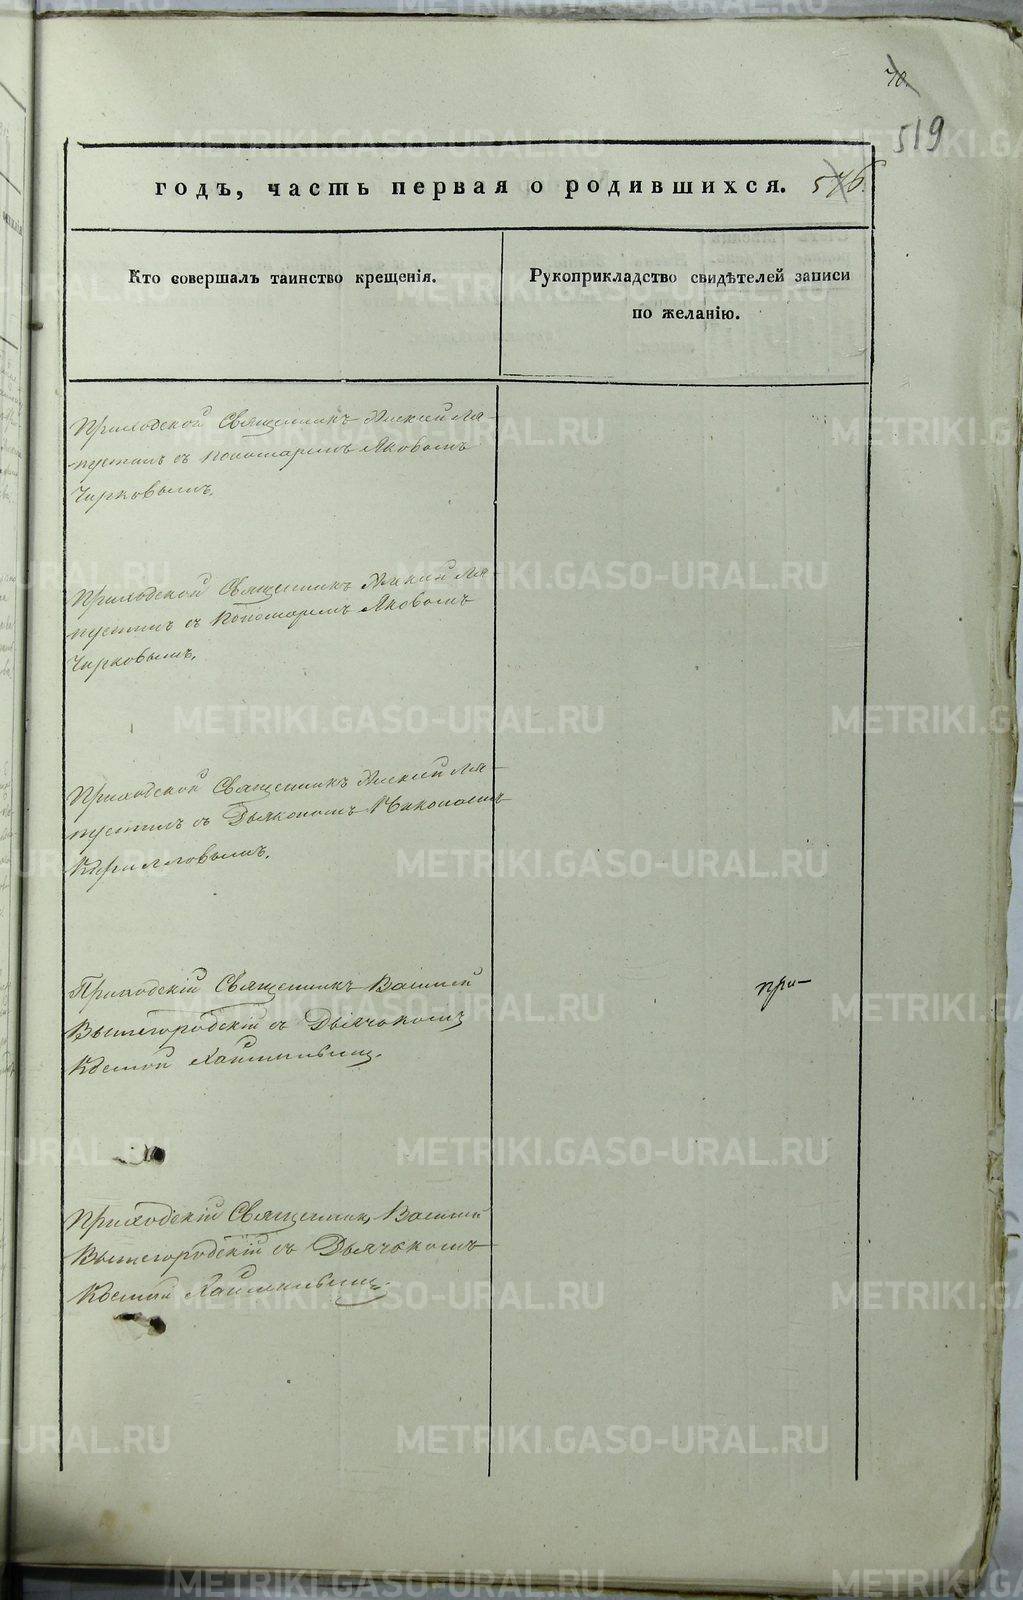 70.
519
годъ, часть первая о родившихся. 576.
Кто совершалъ таинство крещенія.
Рукоприкладство свидѣтелей записи
по желанію.
Приходской Священникъ Ла-
пустинъ съ Пономаремъ Яковомъ
Чирковымъ.
Приходской Священникъ Ла-
пустинъ съ Пономаремъ Яковомъ
Чирковымъ.
Приходской Священникъ Ла-
пустинъ съ Дьякономъ Николаемъ
Кирилловымъ.
Приходскій Священникъ Василій
Вышегородскій съ Дьячкомъ
Козмой
при-
Приходскій Священник Василій
Вышегородскій съ Дьячкомъ
Козмой
METRIKI.GASO-URAL.RU